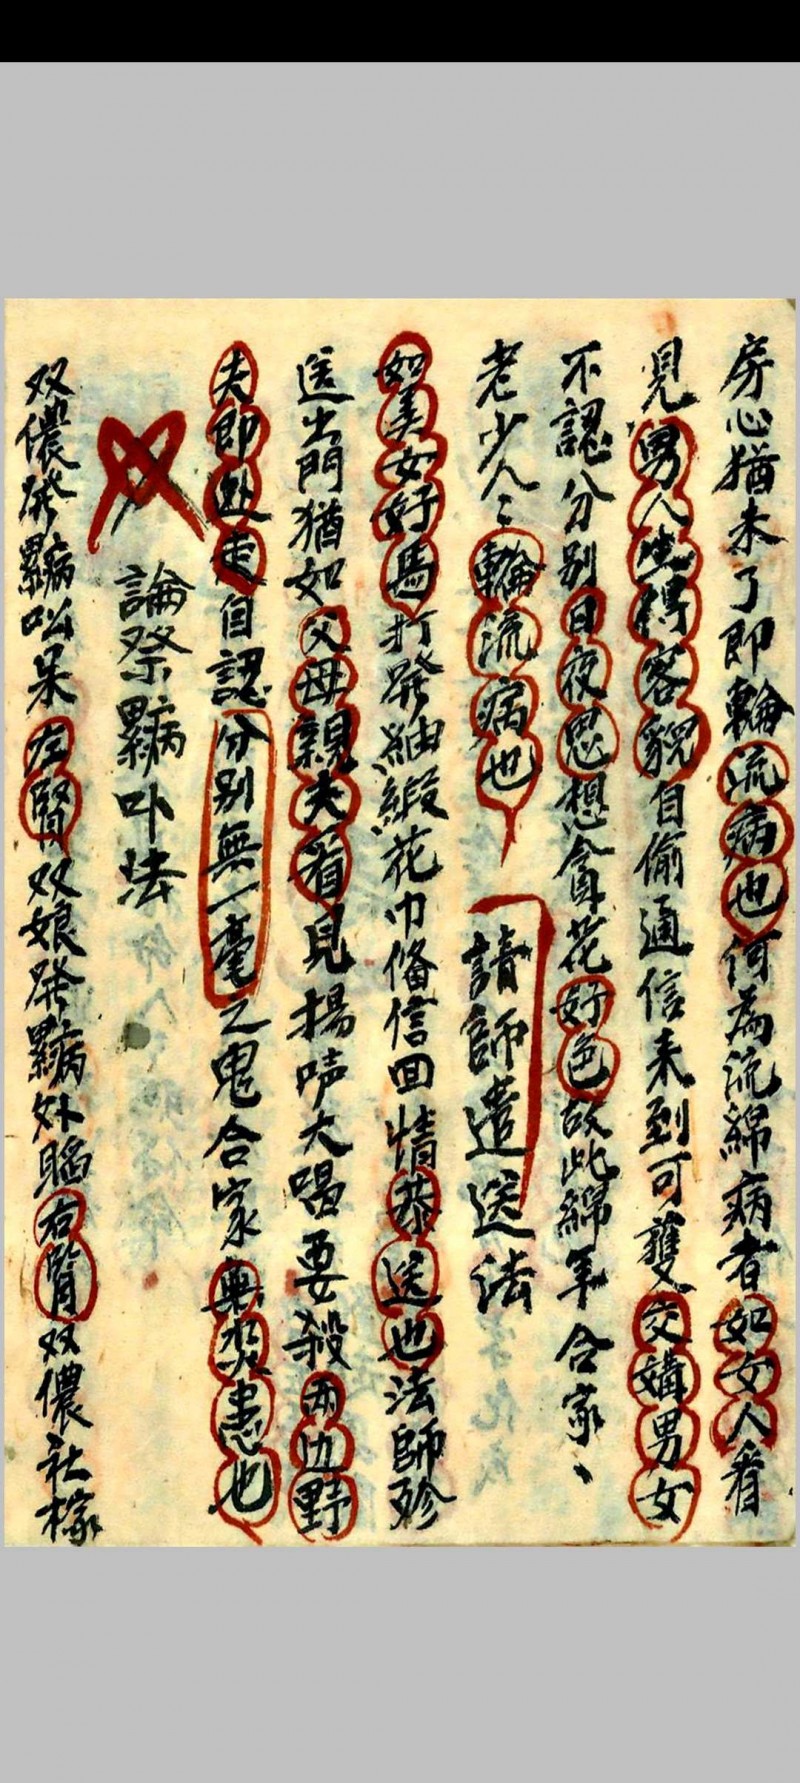 房心猶未了即輪流病也何為流綿病者如女人看
見男人生得容貌自偷通信未到可雙交媾男女
不認分别日夜思想貪花好色故此綿年合家、
老少人〻輪流病也
請師遣送法
如美女好馬打發紬緞花巾俻信回情恭送也法師
送出門猶如父母親夫看見揚声大唱要殺両边野
夫即处走自認分别無一毫之鬼合家無患也
論祭病卟法
双儂發病呆左腎双娘發病外右腎双儂社